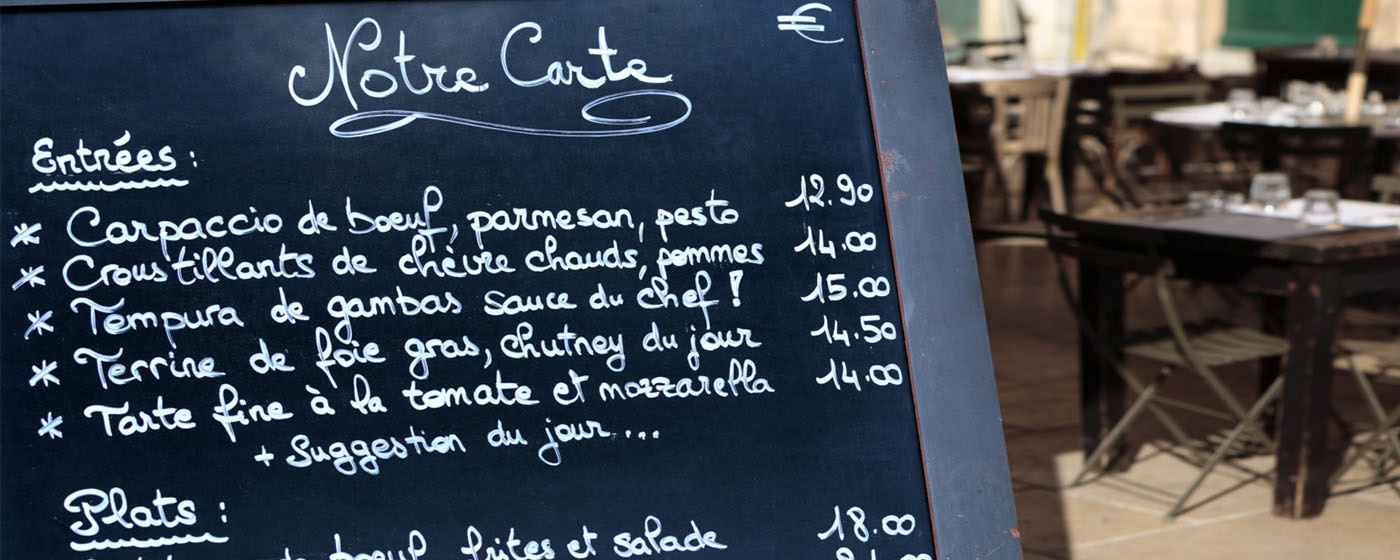 Notre Carte €
Entrées :
* Carpaccio de boeuf, parmesan, pesto 12.90
* Croustillants de chèvre chauds, pommes 14.00
* Tempura de gambas sauce du chef ! 15.00
* Terrine de foie gras, chutney du jour 14.50
* Tarte fine à la tomate et mozzarella 14.00
+ Suggestion du jour....
Plats :
de boeuf frites et salade 18.00